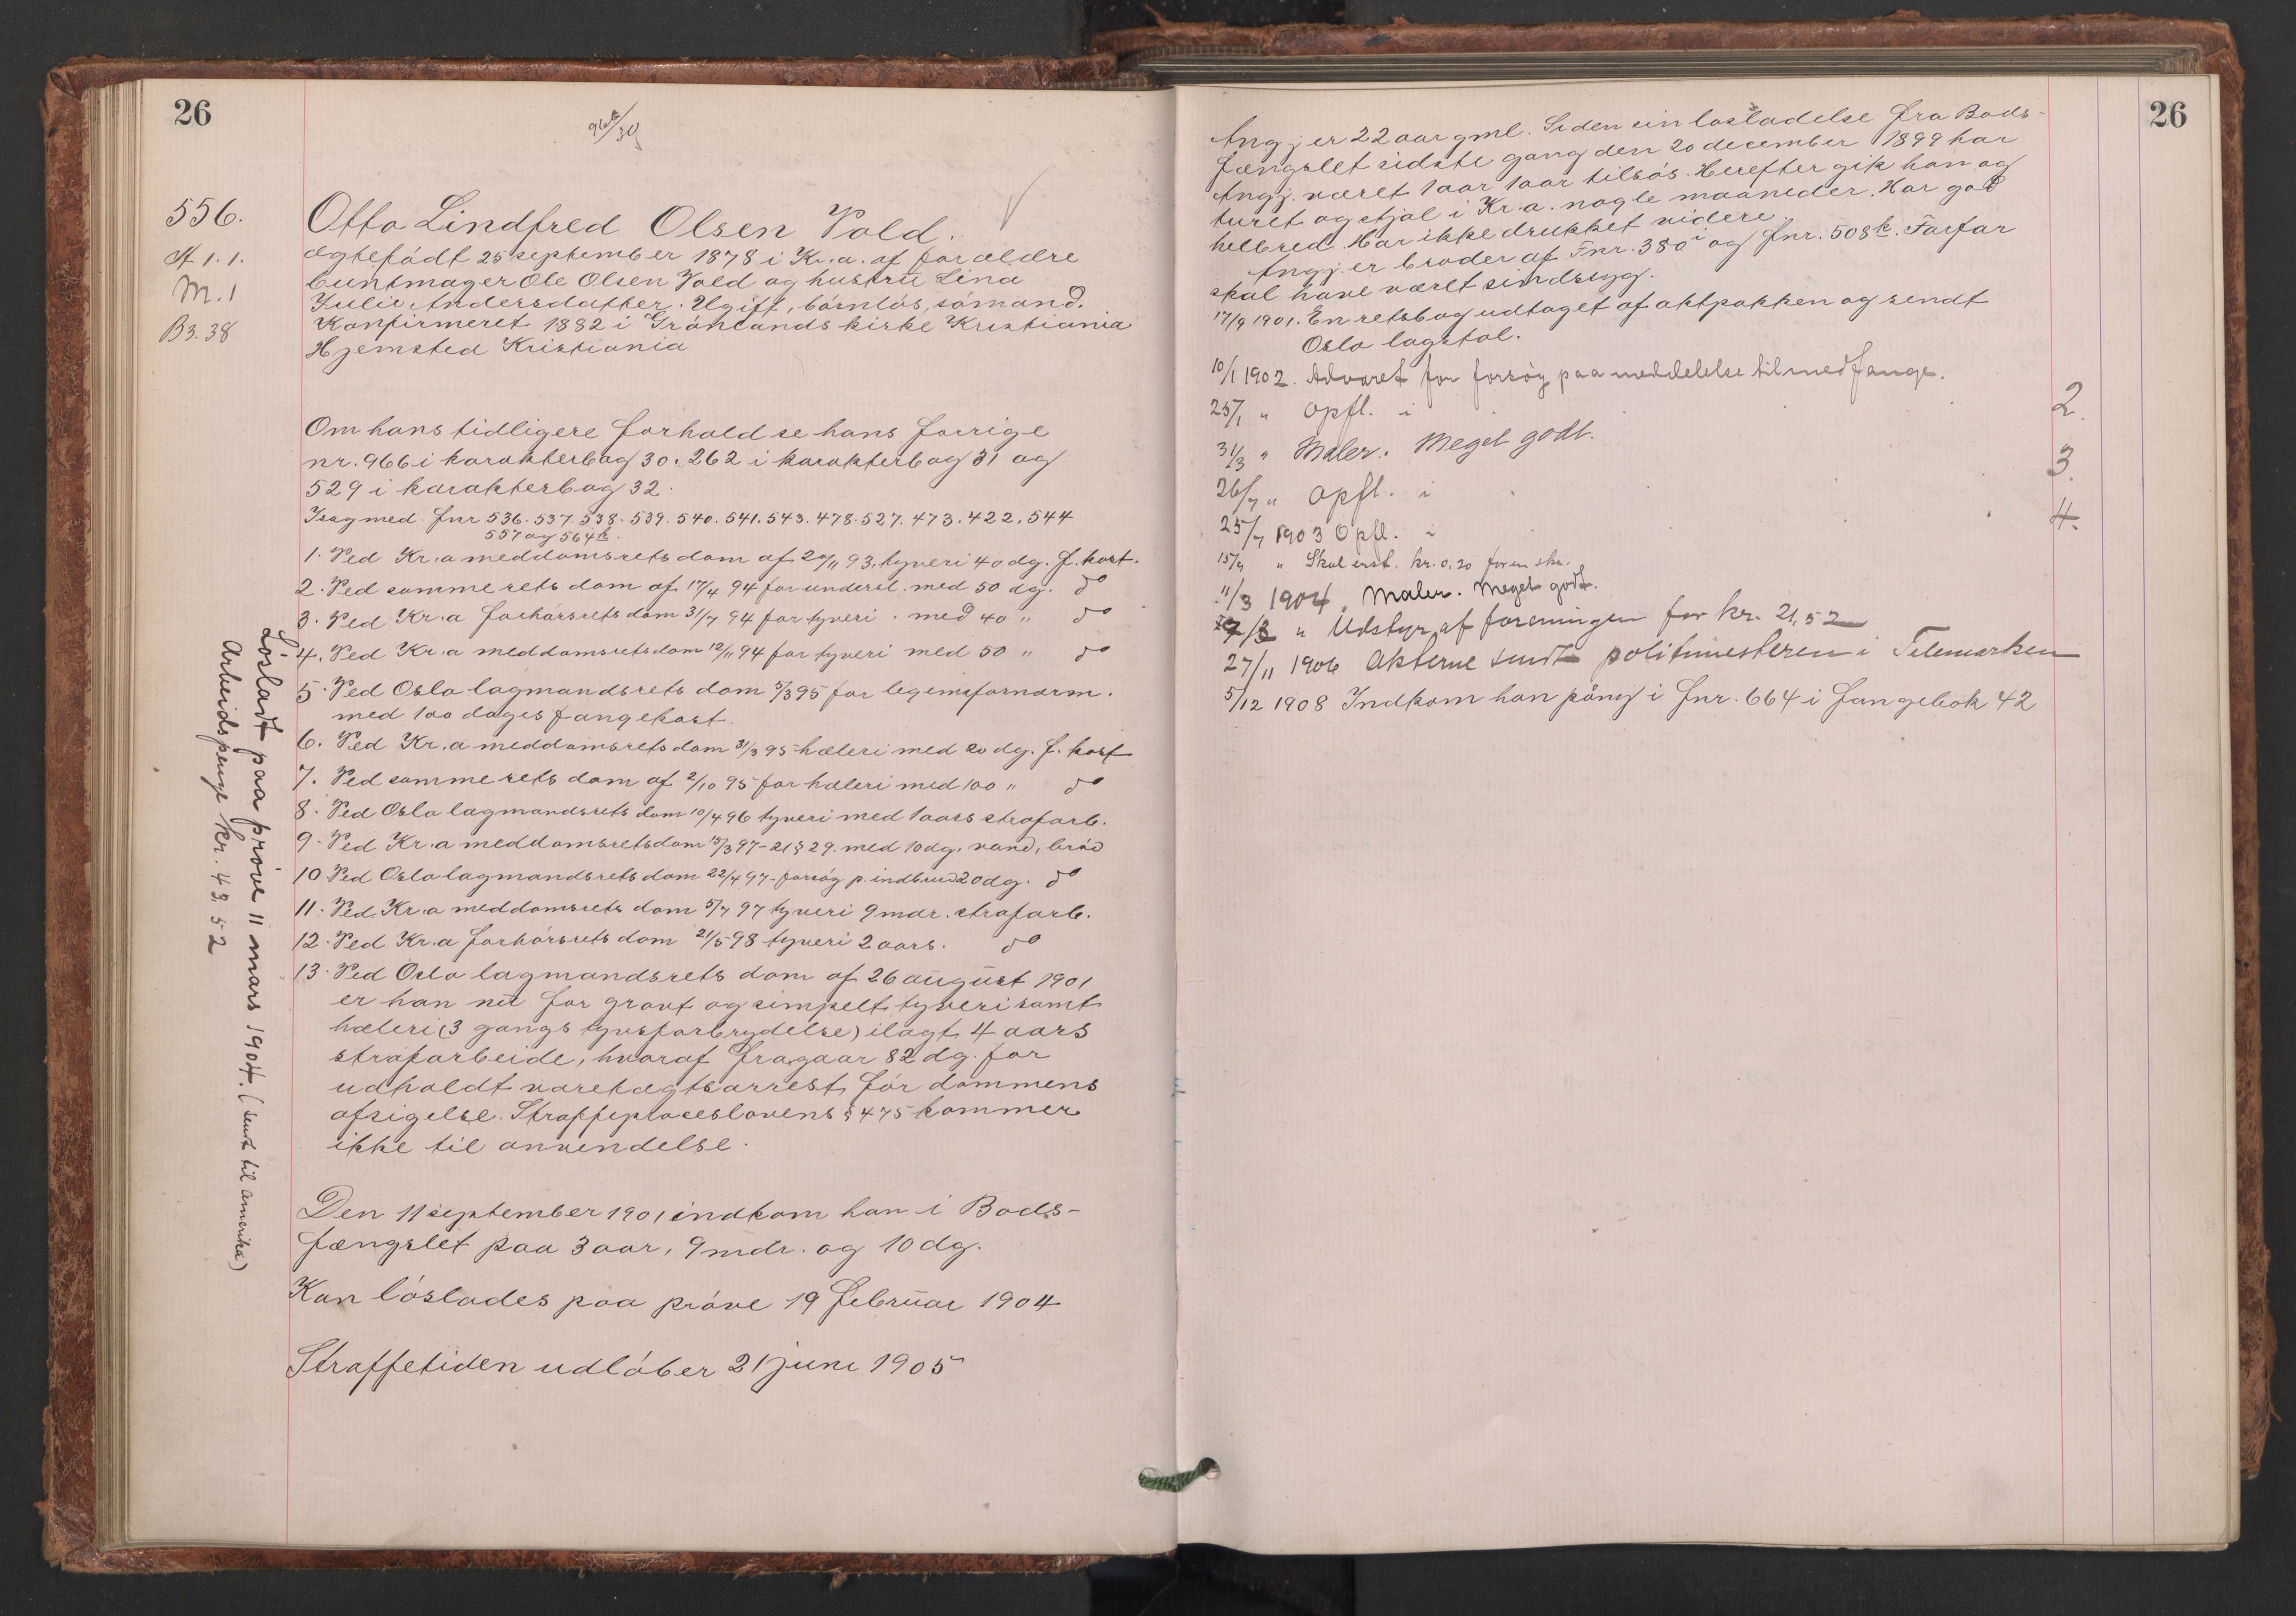 26
966/30
556.
Afl. 1.
M. 1
B3. 38
Otto Lindfred Olsen Vold.
ægtefødt 25 september 1878 i Kr.a. af forældre
buntmager Ole Olsen Vold og hustru Lina
Julie Andersdatter. Ugift, børnløs, sømand.
Konfirmeret 1882 i Grønlands kirke Kristiania
Hjemsted Kristiania
Om hans tidligere forhold se hans forrige
nr. 966 i karakterbog 30. 262 i karakterbog 31 og
529 i karakterbog 32.
I sag med fnr 536. 537. 538. 539. 540. 541. 543. 478. 527. 473. 422. 544
557 og 564k.
1. Ved Kr.a meddomsrets dom af 20/11 93, tyveri 40 dg. f. kost.
2. Ved samme rets dom af 17/4 94 for undersl. med 50 dg. do
3. Ved Kr.a forhørsrets dom 31/7 94 for tyveri. med 40 " do
4. Ved Kr.a meddomsretsdom 12/11 94 for tyveri med 50 " do
5. Ved Oslo lagmandsrets dom 5/3 95 for legemsfornærm.
med 100 dages fangekost.
6. Ved Kr.a meddomsrets dom 31/3 95 hæleri med 20 dg. f. kost
7. Ved samme rets dom af 2/10 95 for hæleri med 100 " do
8. Ved Oslo lagmandsrets dom 10/4 96 tyveri med 1 aars strafarb.
9. Ved Kr.a meddomsretsdom 15/3 97 - 21 § 29. med 10 dg. vand, brød
10. Ved Oslo lagmandsrets dom 22/4 97 - forsøg p. indbrud 20 dg. do
11. Ved Kr.a meddomsrets dom 5/7 97 tyveri 9 mdr. strafarb.
12. Ved Kr.a forhørsrets dom 21/5 98 tyveri 2 aars. do
13. Ved Oslo lagmandsrets dom af 26 august 1901
er han nu for grovt og simpelt tyveri samt
hæleri (3 gangs tyvsforbrydelse) ilagt 4 aars
strafarbeide, hvoraf fragaar 82 dg. for
udholdt varetægtsarrest før dommens
afsigelse. Straffeproceslovens § 475 kommer
ikke til anvendelse.
Den 11 september 1901 indkom han i Bods-
fængslet paa 3 aar, 9 mdr. og 10 dg.
Kan løslades paa prøve 19 februar 1904
Straffetiden udløber 21 juni 1905
Løsladt paa prøve 11 mars 1904. (sendt til amerika)
Arbeidspenge kr. 43.52
26
Angj. er 22 aar gml. Siden sin løsladelse fra Bods-
fængslet sidste gang den 20 december 1899 har
Angj. været 1 aar 1 aar tilsøs. Herefter gik han og
turet og stjal i Kr.a. nogle maaneder. Har god
helbred. Har ikke drukket videre.
Angj. er broder af Fnr. 380i og fnr. 508k. Farfar
skal have været sindssyg.
17/9 1901. En retsbog udtaget af aktpakken og sendt
Oslo lagstol.
10/1 1902. Advaret for forsøg paa meddelelse til medfange.
25/1 " Opfl. i 2.
31/3 " Maler. Meget godt.
26/7 " Opfl. i 3.
25/7 1903 Opfl. i 4.
15/9 " Skal erst. kr. 0,20 for en
11/3 1904. Maler. Meget godt.
27/3 " Udstyr af foreningen for kr. 21,52
27/11 1906 Akterne sendt politimesteren i Telemarken
5/12 1908 Indkom han påny i fnr. 664 i Fangebok 42